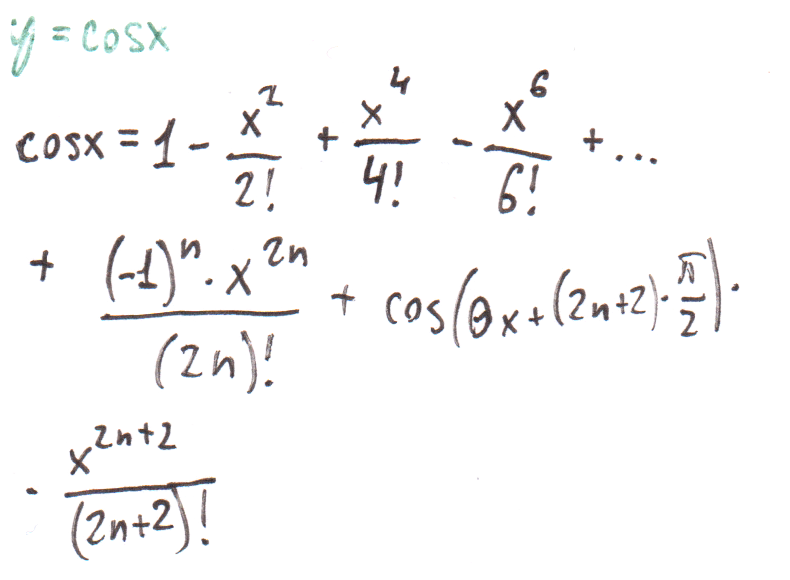 y = cosx
cosx = 1 - x^2/2! + x^4/4! - x^6/6! + ...
+ (-1)^n · x^{2n}/(2n)! + cos(θx + (2n+2) · π/2) ·
· x^{2n+2}/(2n+2)!